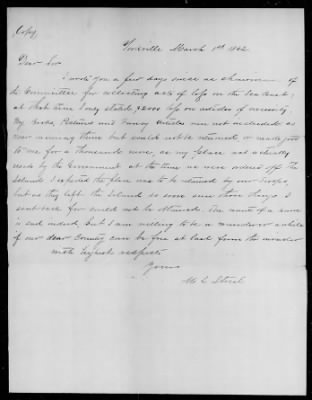 (Copy)
Yorkville March 1st 1862
Dear Sir
I wrote you a few days since as chairman of
the Committee for collecting acts of loss on the Sea Coast;
at that time I only stated $2000 loss on articles of necessity
My Books, Pictures and Fancy articles were not included as
ever winning these but could not be returned or made good
to me for a thousand more, as my place was actually
used by the Government at the time we were ordered off the
Islands I expected the place was to be retained by our troops,
but as they left the Island so soon even those things I
sent back for could not be obtained. The wants of a war
is sad indeed, but I am willing to be a wanderer a while
if our dear Country can be free at last from the invader
with highest respect
Yours
M L Stuart